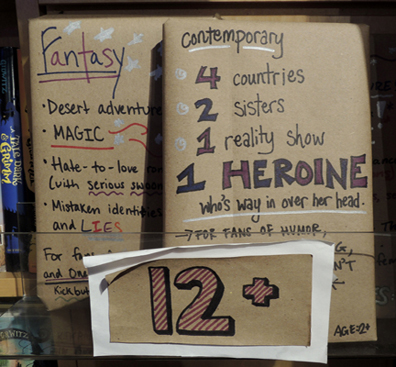 Fantasy
• Desert adventure
• MAGIC
• Hate-to-love
(with serious swoon
• Mistaken identities
and LIES
For fans
and One
Kickbu
Contemporary
4 countries
2 sisters
1 reality show
1 HEROINE
who's way in over her head.
→ FOR FANS OF HUMOR,
12+
AGE:
A Tale Dark
& GRIMM
GIDWITZ